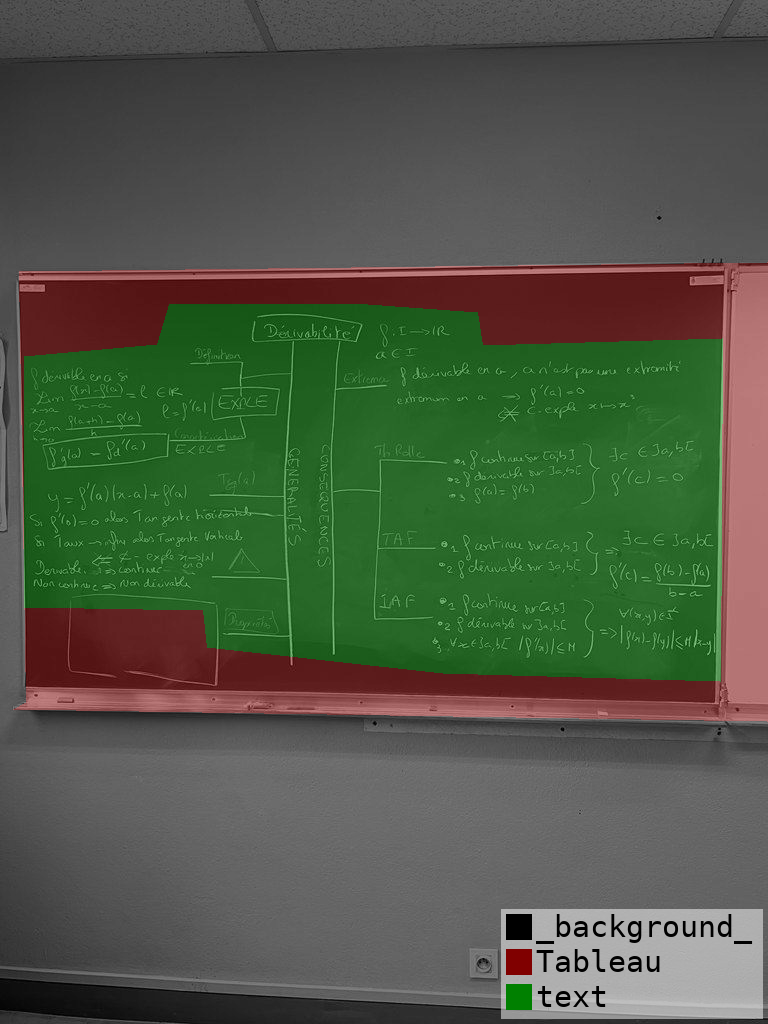 Dérivabilité
f: I → IR
a ∈ I
Définition
f dérivable en a si
Lim x→a (f(x)-f(a))/(x-a) = l ∈ IR
l = f'(a)
EXPLE
Lim h→0 (f(a+h)-f(a))/h
f'g(a) = f'd(a)
Caractérisation
EXPLE
Tg(a)
y = f'(a)(x-a)+f(a)
Si f'(a)=0 alors Tangente horizontale
Si Taux → infini alors Tangente Verticale
Dérivable ⇒ continue
exple x→|x| en 0
Non continue ⇒ Non dérivable
Propriétés
GENERALITÉS
CONSEQUENCES
Extrema
f dérivable en a, a n'est pas une extrémité
extremum en a ⇒ f'(a)=0
C-exple x→x³
Th Rolle
•1 f continue sur [a,b]
•2 f dérivable sur ]a,b[
•3 f(a)=f(b)
∃c ∈ ]a,b[
f'(c) = 0
TAF
•1 f continue sur [a,b]
•2 f dérivable sur ]a,b[
⇒ ∃c ∈ ]a,b[
f'(c) = (f(b)-f(a))/(b-a)
IAF
•1 f continue sur [a,b]
•2 f dérivable sur ]a,b[
•3 ∀x ∈ ]a,b[ |f'(x)| ≤ M
∀(x,y) ∈ I²
⇒ |f(x)-f(y)| ≤ M|x-y|
_background_
Tableau
text